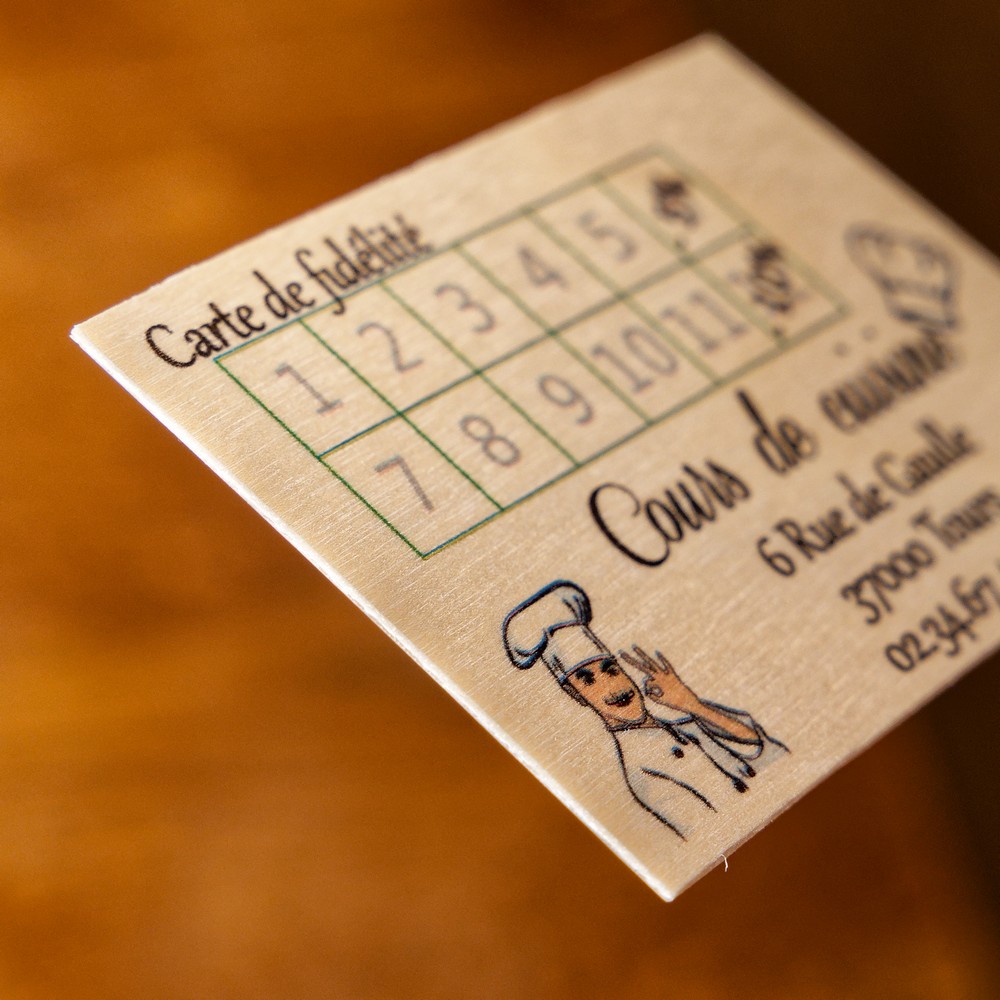 Carte de fidélité
1 2 3 4 5
7 8 9 10 11
Cours de cuisine
6 Rue de Gaulle
37000 Tours
02.34.67.